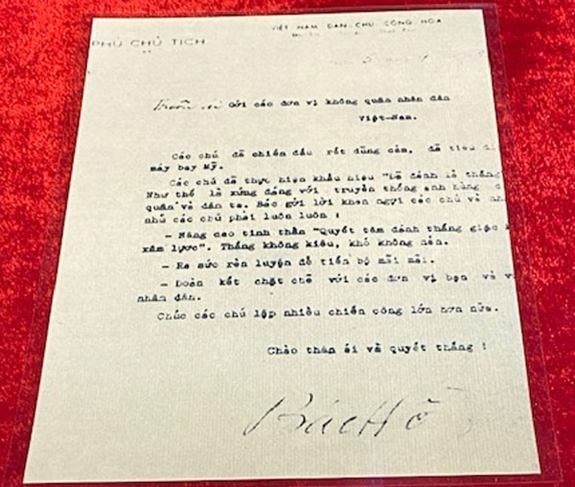 VIỆT NAM DÂN CHỦ CỘNG HÒA
PHỦ CHỦ TỊCH
Gửi các đơn vị không quân nhân dân
Việt-Nam.
Các chú đã chiến đấu rất dũng cảm, đã tiêu di
máy bay Mỹ.
Các chú đã thực hiện khẩu hiệu "Đã đánh là thắng
Như thế là xứng đáng với truyền thống anh hùng c
quân và dân ta. Bác gửi lời khen ngợi các chú và nh
nhủ các chú phải luôn luôn :
- Nâng cao tinh thần "Quyết tâm đánh thắng giặc
xâm lược". Thắng không kiêu, khó không nản.
- Ra sức rèn luyện để tiến bộ mãi mãi.
- Đoàn kết chặt chẽ với các đơn vị bạn và v
nhân dân.
Chúc các chú lập nhiều chiến công lớn hơn nữa.
Chào thân ái và quyết thắng !
Bác Hồ